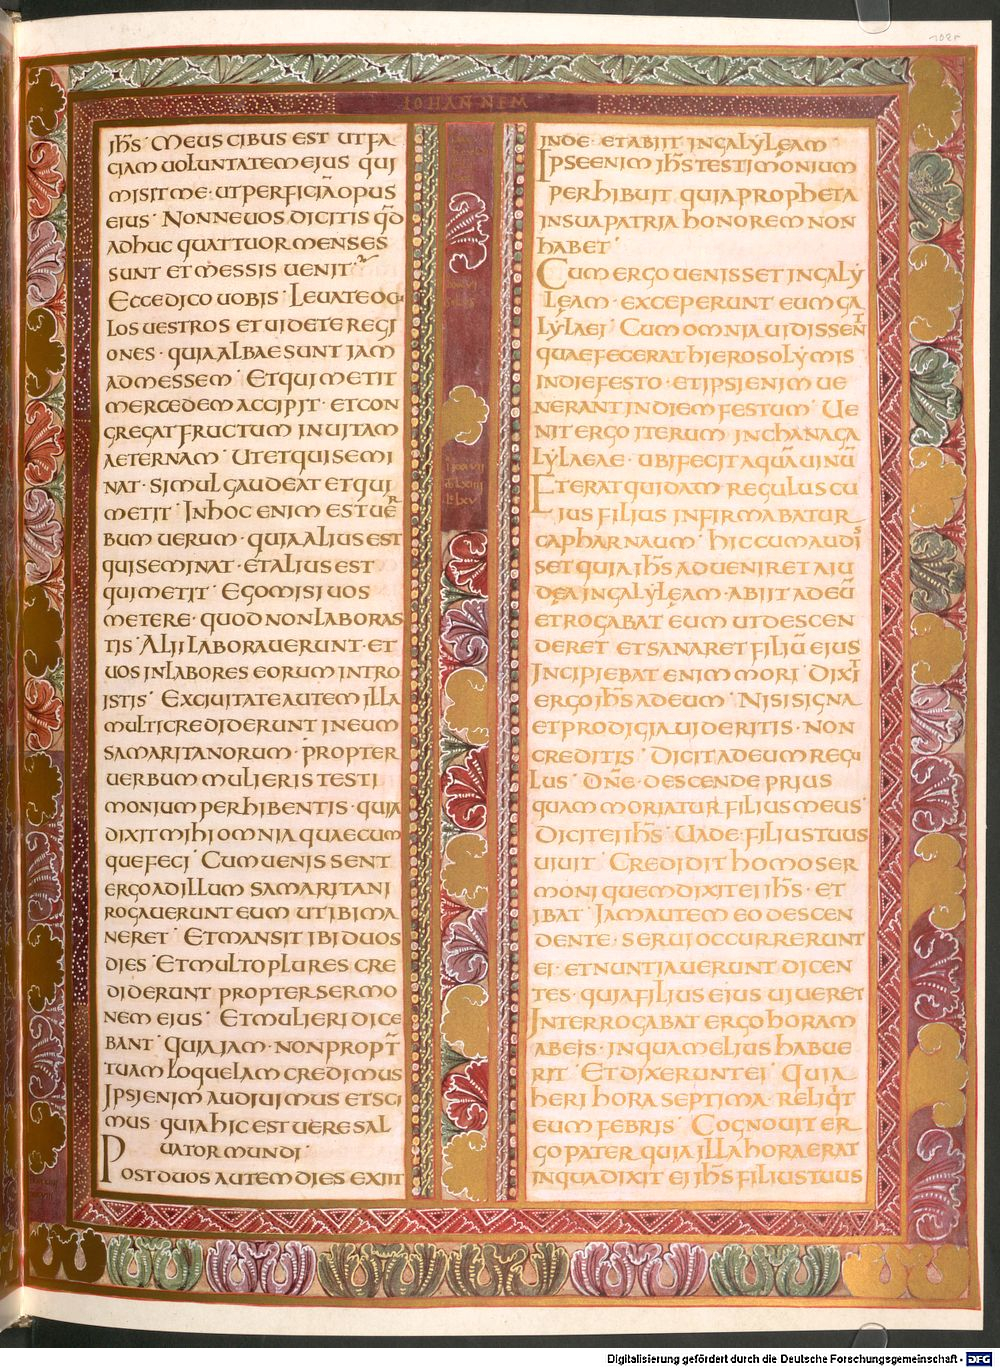 IOHANNEM
ihs· Meus cibus est ut fa
ciam voluntatem ejus qui
misit me· ut perficiā opus
eius· Nonne vos dicitis qđ
adhuc quattuor menses
sunt et messis venit
Ecce dico vobis· Levate ocu
los vestros et videte regi
ones· quia albae sunt jam
ad messem· Et qui metit
mercedem accipit· et con
gregat fructum in vitam
aeternam· Ut et qui semi
nat· simul gaudeat et qui
metit· In hoc enim est ver
bum verum· quia alius est
qui seminat· et alius est
qui metit· Ego misi vos
metere· quod non laboras
tis· Alii laboraverunt· et
vos in labores eorum intro
istis· Ex civitate autem illa
multi crediderunt in eum
samaritanorum· propter
verbum mulieris testi
monium perhibentis· quia
dixit mihi omnia quaecum
que feci· Cum venissent
ergo ad illum samaritani
rogaverunt eum ut ibi ma
neret· Et mansit ibi duos
dies· Et multo plures cre
diderunt propter sermo
nem ejus· Et mulieri dice
bant· quia jam· non propt̄
tuam loquelam credimus
Ipsi enim audivimus et sci
mus quia hic est vere sal
vator mundi·
Post duos autem dies exiit
inde· et abiit in galyleam·
Ipse enim ihs testimonium
perhibuit quia propheta
in sua patria honorem non
habet·
Cum ergo venisset in galy
leam· exceperunt eum ga
lylaei· Cum omnia vidissent
quae fecerat hierosolymis
in die festo· et ipsi enim ve
nerant in diem festum· Ve
nit ergo iterum in chana ga
lylaeae· ubi fecit aquā vinū
Et erat quidam regulus cu
jus filius infirmabatur
capharnaum· hic cum audis
set quia ihs adveniret a iu
dęa in galylęam· abiit ad eū
et rogabat eum ut descen
deret et sanaret filiū ejus
Incipiebat enim mori· Dixit
ergo ihs ad eum· Nisi signa
et prodigia videritis· non
creditis· Dicit ad eum regu
lus· dn̄e· descende prius
quam moriatur filius meus·
Dicit ei ihs· Vade· filius tuus
vivit· Credidit homo ser
moni quem dixit ei ihs· et
ibat· Jam autem eo descen
dente· servi occurrerunt
ei· et nuntiaverunt dicen
tes· quia filius ejus viveret
Interrogabat ergo horam
ab eis· in qua melius habue
rit· Et dixerunt ei· quia
heri hora septima· reliq̄t
eum febris· Cognovit er
go pater quia illa hora erat
in qua dixit ei ihs filius tuus
Digitalisierung gefördert durch die Deutsche Forschungsgemeinschaft - DFG